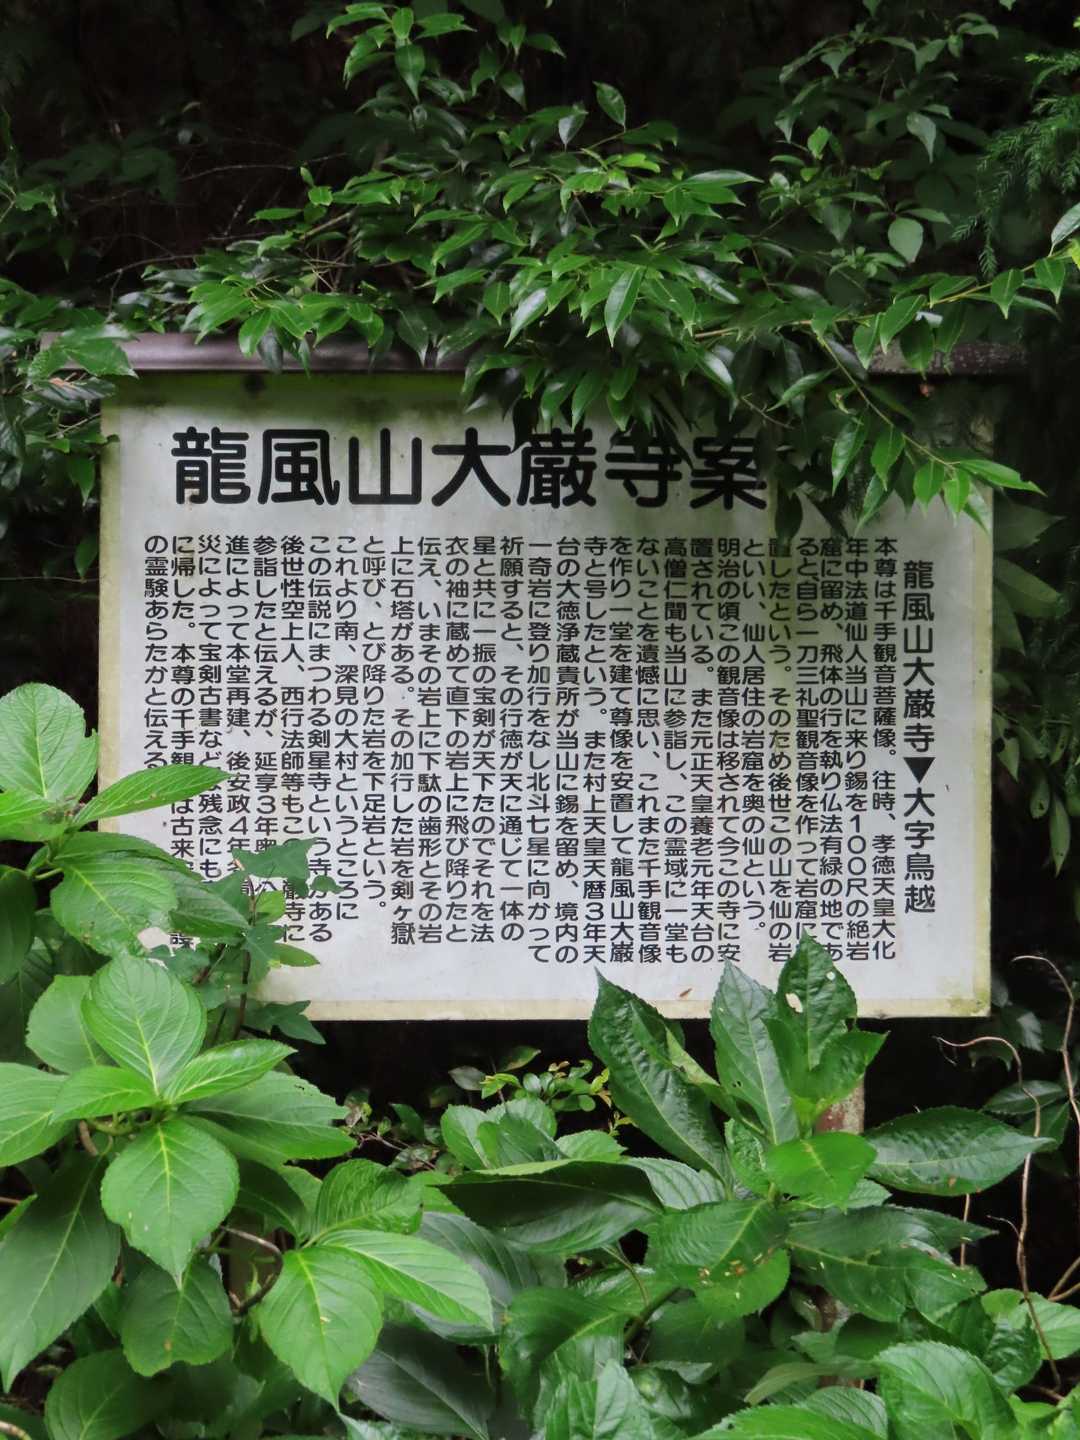 龍風山大巌寺案
龍風山大巌寺▼大字鳥越
本尊は千手観音菩薩像。往時、孝徳天皇大化
年中法道仙人当山に来り錫を100尺の絶岩
窟に留め、飛体の行を執り仏法有緑の地であ
ると、自ら一刀三礼聖観音像を作って岩窟に
置したという。そのため後世この山を仙の岩
といい、仙人居住の岩窟を奥の仙という。
明治の頃この観音像は移されて今この寺に安
置されている。また元正天皇養老元年天台の
高僧仁聞も当山に参詣し、この霊域に一堂も
ないことを遺憾に思い、これまた千手観音像
を作り一堂を建て尊像を安置して龍風山大巌
寺と号したという。また村上天皇天暦3年天
台の大徳浄蔵貴所が当山に錫を留め、境内の
一奇岩に登り加行をなし北斗七星に向かって
祈願すると、その行徳が天に通じて一体の
星と共に一振の宝剣が天下たのでそれを法
衣の袖に蔵めて直下の岩上に飛び降りたと
伝え、いまその岩上に下駄の歯形とその岩
上に石塔がある。その加行した岩を剣ヶ獄
と呼び、とび降りた岩を下足岩という。
これより南、深見の大村というところに
この伝説にまつわる剣星寺という寺がある
後世性空上人、西行法師等もこの巌寺に
参詣したと伝えるが、延享3年奥
進によって本堂再建、後安政4年
災によって宝剣古書など残念にも
に帰した。本尊の千手観は古来
の霊験あらたかと伝える